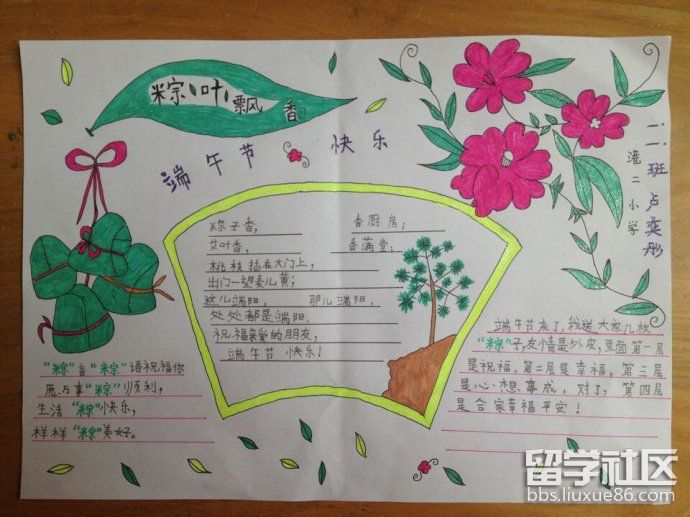 粽叶飘香
端午节 快乐
二一班卢奕彤
港二小学
粽子香， 香厨房；
艾叶香， 香满堂；
桃枝插在大门上，
出门一望麦儿黄；
这儿端阳， 那儿端阳，
处处都是端阳
祝福亲爱的朋友，
端午节快乐！
“粽”言“粽”语祝福你
愿万事“粽”顺利，
生活“粽”快乐，
样样“粽”美好。
端午节来了，我送大家几枚
“粽”子，友情是外皮，里面第一层
是祝福，第二层是幸福，第三层
是心想事成，对了，第四层
是合家幸福平安！
留学社区
bbs.liuxue86.com